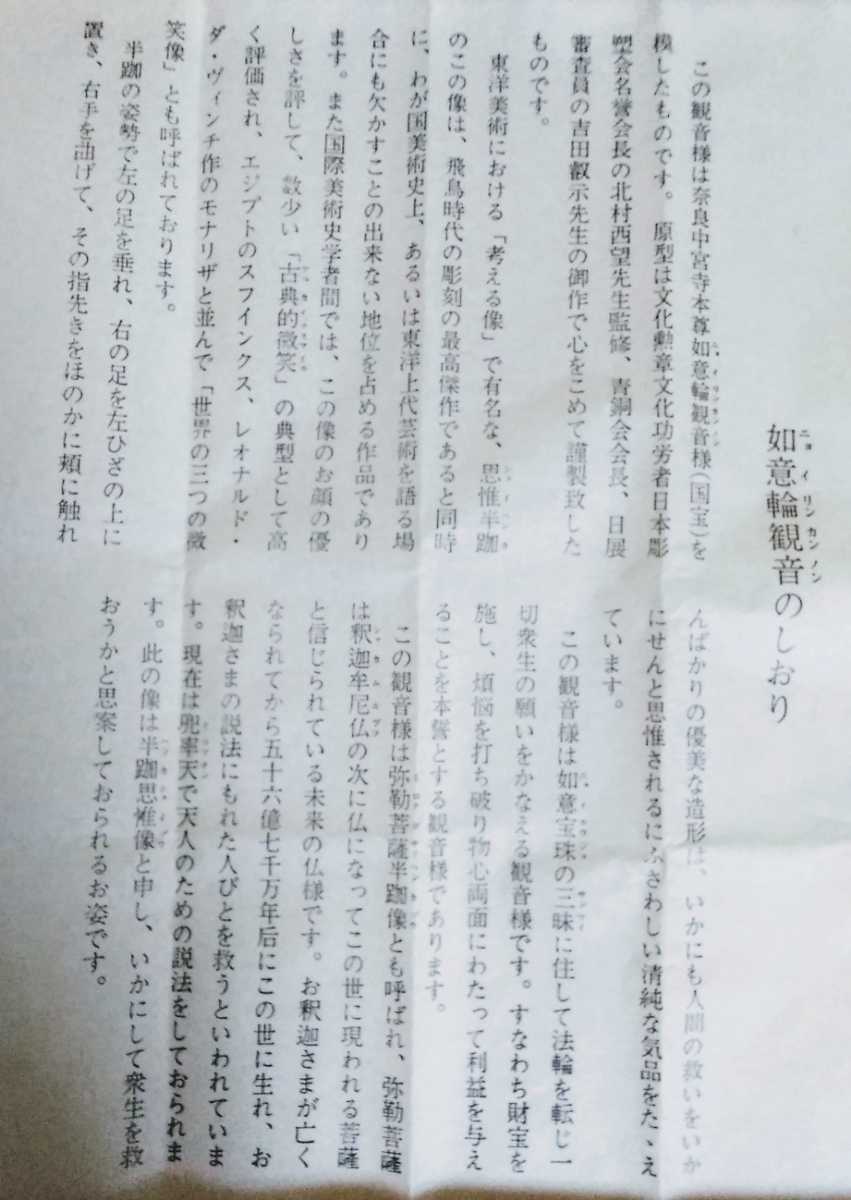 如意輪観音のしおり
この観音様は奈良中宮寺本尊如意輪観音様(国宝)を
模したものです。原型は文化勲章文化功労者日本彫
塑会名誉会長の北村西望先生監修、青銅会会長、日展
審査員の吉田叡示先生の御作で心をこめて謹製致した
ものです。
東洋美術における「考える像」で有名な、思惟半跏
のこの像は、飛鳥時代の彫刻の最高傑作であると同時
に、わが国美術史上、あるいは東洋上代芸術を語る場
合にも欠かすことの出来ない地位を占める作品であり
ます。また国際美術史学者間では、この像のお顔の優
しさを評して、数少い「古典的微笑」の典型として高
く評価され、エジプトのスフインクス、レオナルド・
ダ・ヴィンチ作のモナリザと並んで「世界の三つの微
笑像」とも呼ばれております。
半跏の姿勢で左の足を垂れ、右の足を左ひざの上に
置き、右手を曲げて、その指先きをほのかに頬に触れ
んばかりの優美な造形は、いかにも人間の救いをいか
にせんと思惟されるにふさわしい清純な気品をたゝえ
ています。
この観音様は如意宝珠の三昧に住して法輪を転じ一
切衆生の願いをかなえる観音様です。すなわち財宝を
施し、煩悩を打ち破り物心両面にわたって利益を与え
ることを本誓とする観音様であります。
この観音様は弥勒菩薩半跏像とも呼ばれ、弥勒菩薩
は釈迦牟尼仏の次に仏になってこの世に現われる菩薩
と信じられている未来の仏様です。お釈迦さまが亡く
なられてから五十六億七千万年后にこの世に生れ、お
釈迦さまの説法にもれた人びとを救うといわれていま
す。現在は兜率天で天人のための説法をしておられま
す。此の像は半跏思惟像と申し、いかにして衆生を救
おうかと思案しておられるお姿です。